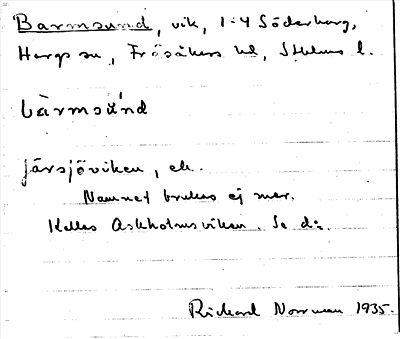 Barmsund, vik, 1:4 Söderharg,
Hargs sn, Frösåkers hd, Sthlms l.
bàrmsún̄d
Järsjöviken, ek.
Namnet brukas ej mer.
Kallas Askholmsviken. Se d:o.
Rickard Norrman 1935.